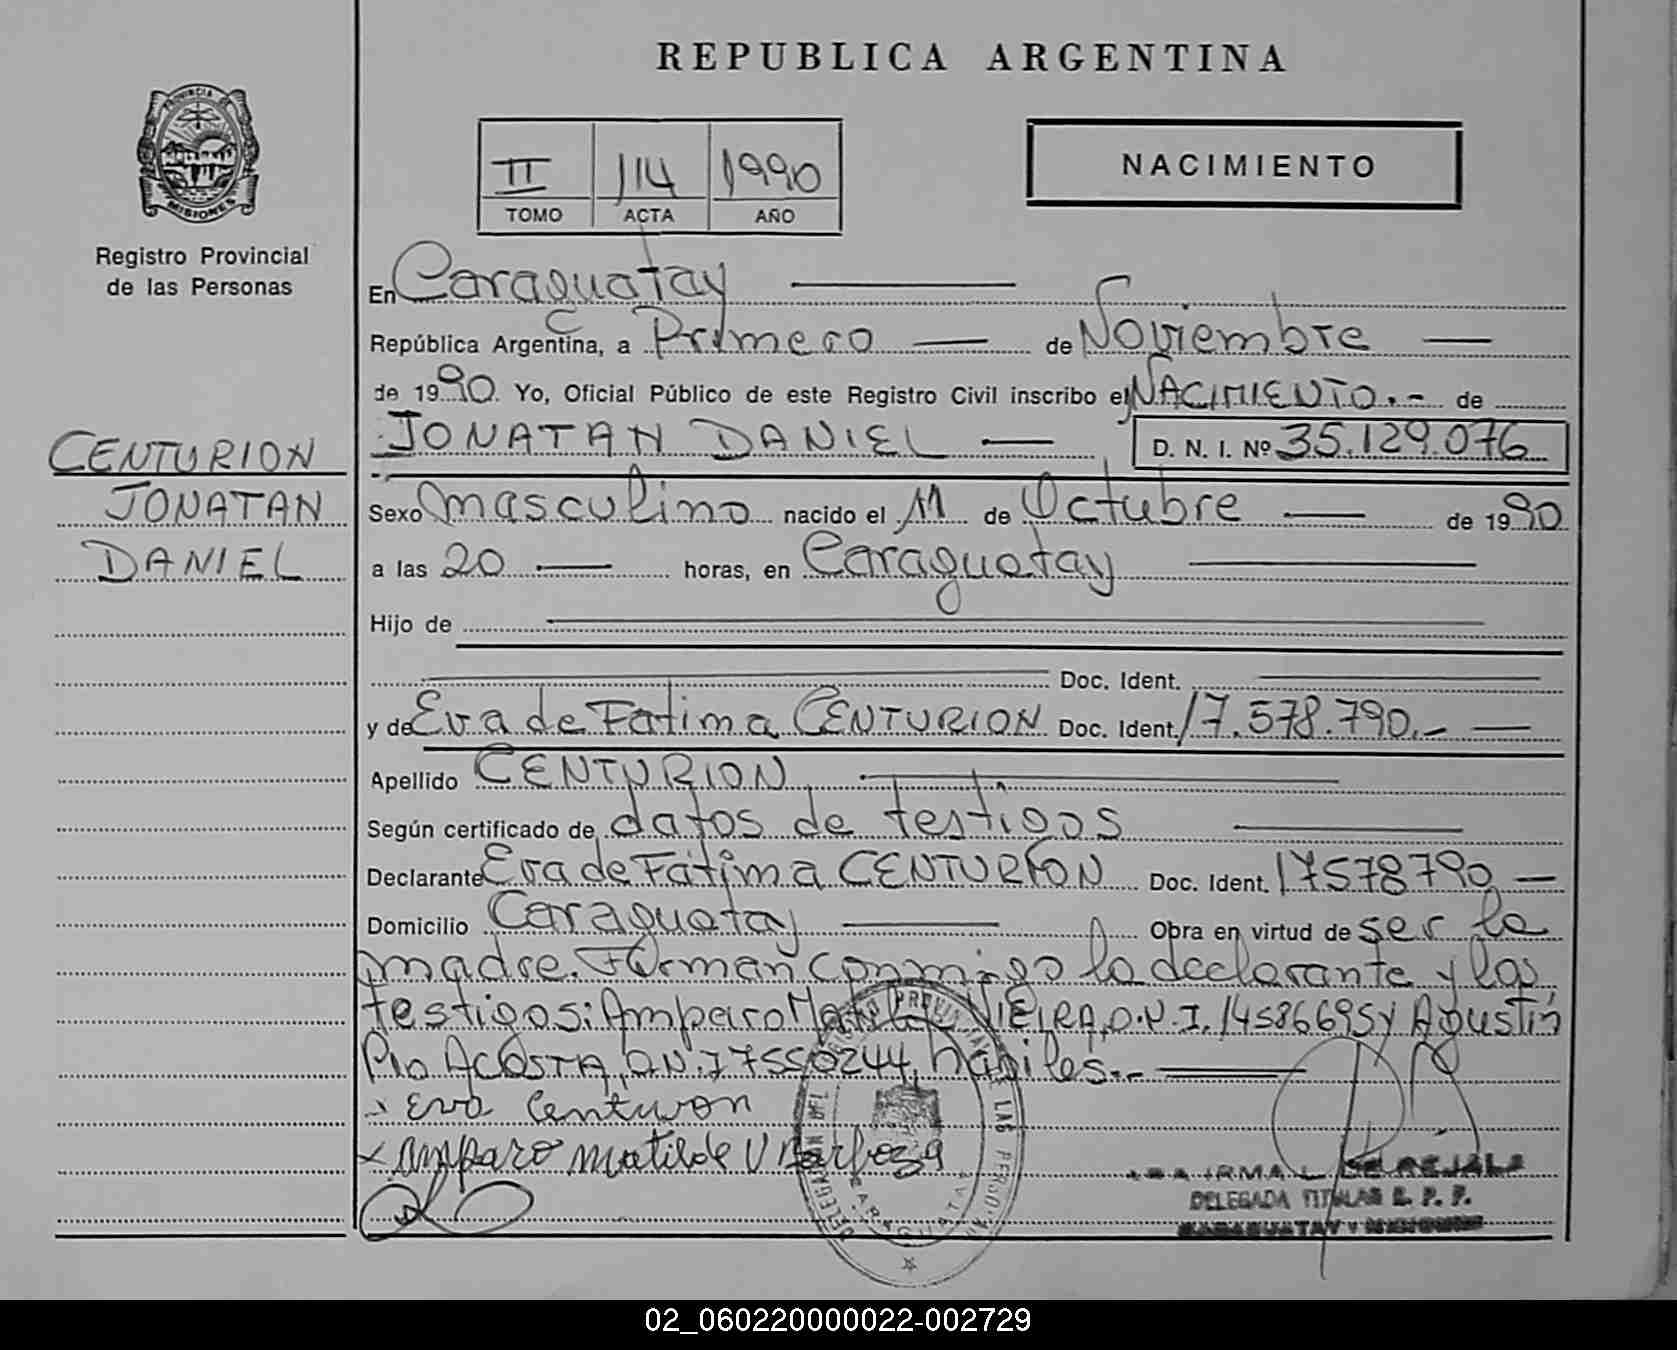 REPUBLICA ARGENTINA
PROVINCIA DE
MISIONES
Registro Provincial
de las Personas
II 114 1990
TOMO ACTA AÑO
NACIMIENTO
En Caraguatay
República Argentina, a Primero de Noviembre
de 1990. Yo, Oficial Público de este Registro Civil inscribo el NACIMIENTO.- de
JONATAN DANIEL D. N. I. Nº 35.129.076
CENTURION
JONATAN
DANIEL
Sexo masculino nacido el 11 de Octubre de 1990
a las 20 horas, en Caraguatay
Hijo de
Doc. Ident.
y de Eva de Fatima CENTURION Doc. Ident. 17.578.790.-
Apellido CENTURION
Según certificado de datos de testigos
Declarante Eva de Fatima CENTURION Doc. Ident. 17578790
Domicilio Caraguatay Obra en virtud de ser la
madre. Firman conmigo la declarante y los
testigos: Amparo Matilde VIEIRA, D.N.I. 14586695 y Agustín
Pio ACOSTA, D.N.I 7550244, habiles.-
x Eva Centurion
x Amparo Matilde V
DELEGADA TITULAR R. P. P.
CARAGUATAY - MISIONES
02_060220000022-002729